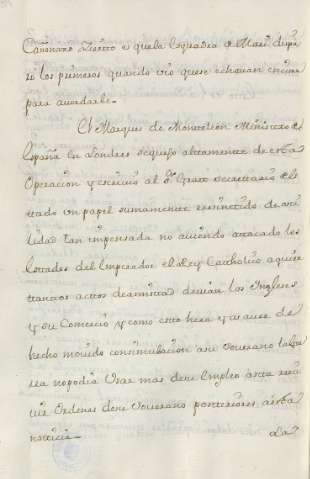 Cañonazo Zierto es que la Esquadra de Mari dispa
ró los primeros quando vió que se echavan encima
para avordarle.
El Marques de Monteleon Ministro de
España en Londres se quejó altamente de esta
Operacion y escrivió al Sr. Secretario de Es
tado un papel sumamente resentido de ac
tidad tan impensada no aviendo attacado los
Estados del Emperador el Rey Catholico a quien
tantos actos de amistad devian los Ingleses
y su Comercio y como esto hera ya as de
hecho movido con simulacion a su Soverano
no podia Usar mas de su Empleo asta reci
vir Ordenes de su Soverano posteriores a esta
noticia.
La